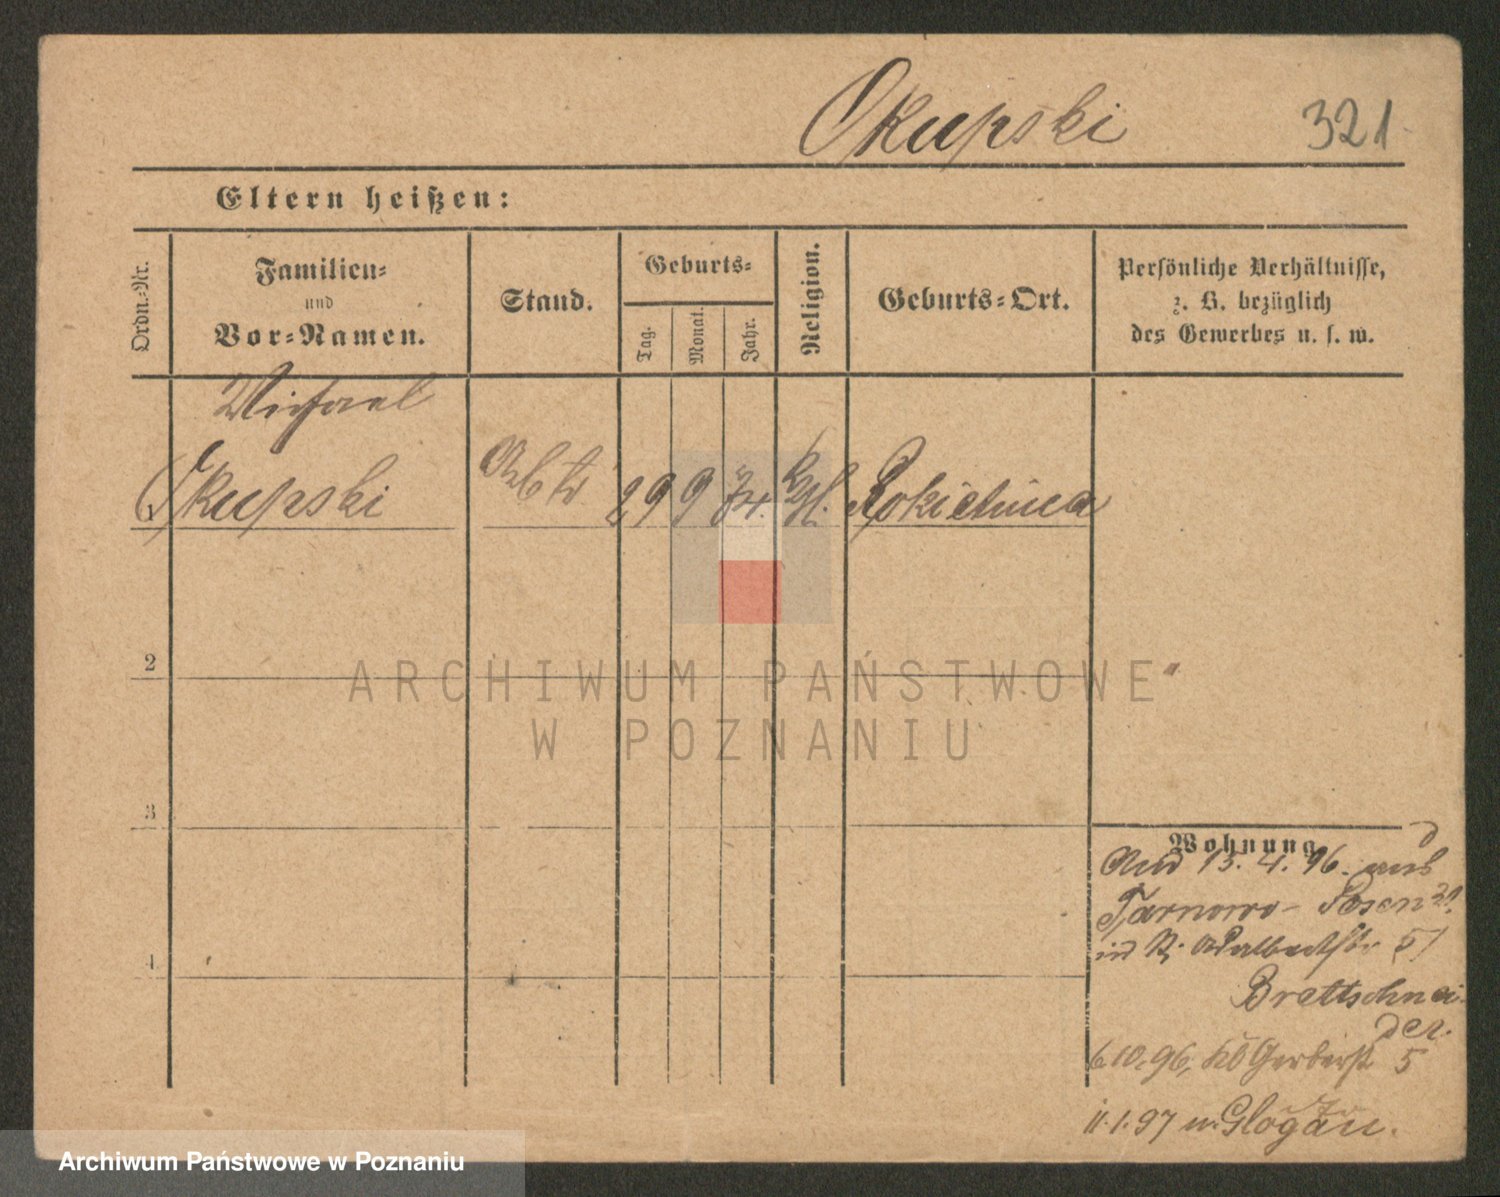 Skupski 321
Eltern heißen:
Ordn.-Nr.
Familien-
und
Vor-Namen.
Stand.
Geburts-
Tag.
Monat.
Jahr.
Religion.
Geburts-Ort.
Persönliche Verhältnisse,
z. B. bezüglich
des Gewerbes u. s. w.
Michael
1 Skupski Arbtr 29 9 74. Kth. Rokietnica
2
3
4
Wohnung
And 15. 4. 96. aus
Tarnowo- Posen
St. Adalbertstr 5
Brettschnei
der.
6.10.96, Gerberst 5
11.1.97 n. Glogau.
ARCHIWUM PAŃSTWOWE
W POZNANIU
Archiwum Państwowe w Poznaniu